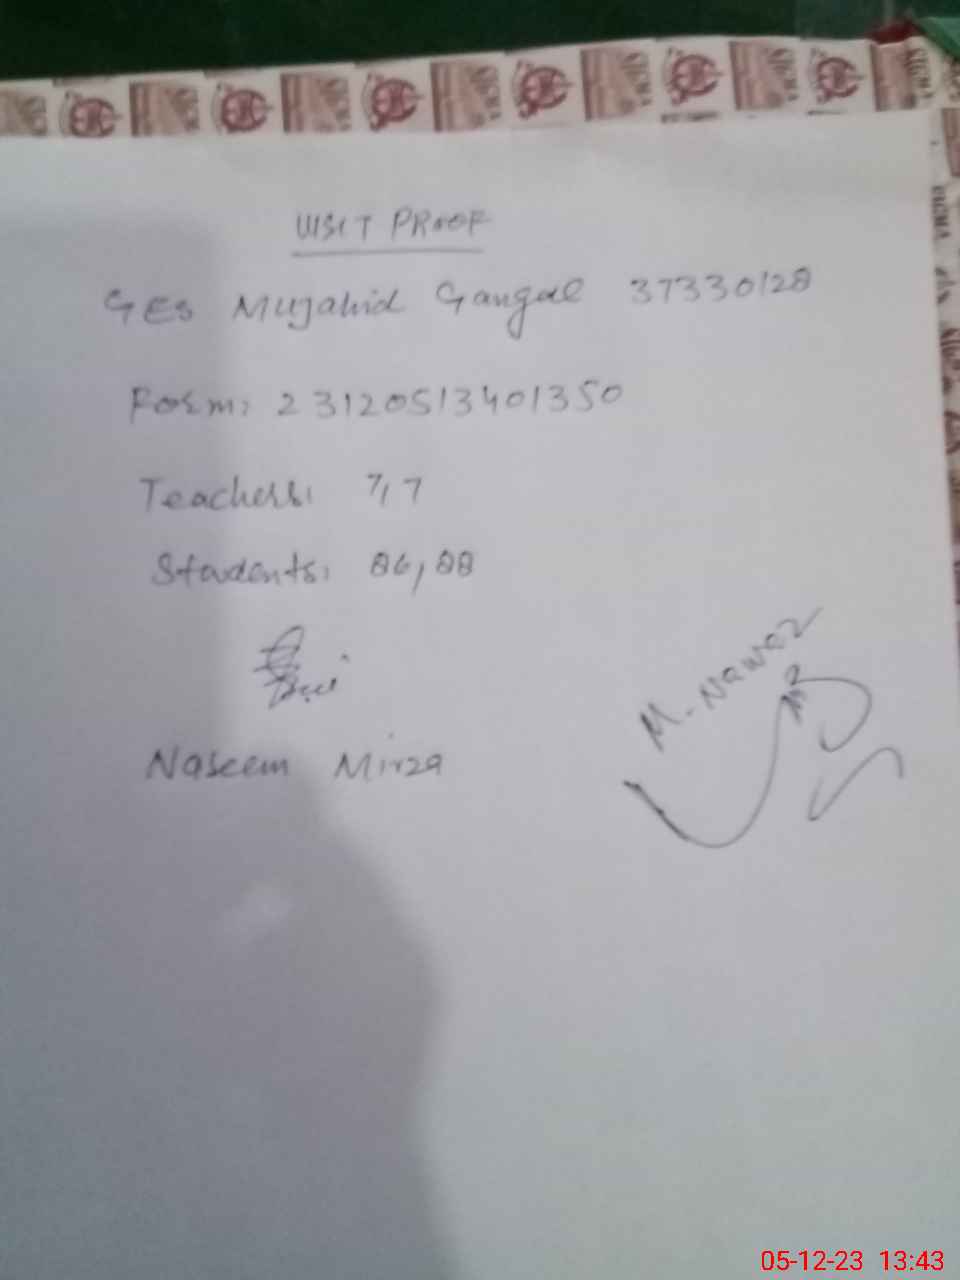 VISIT PROOF
GES Mujahid Gangal 37330128
Form: 23120513401350
Teachers: 7, 7
Students: 86, 88
M. Nawaz
Naseem Mirza
05-12-23 13:43